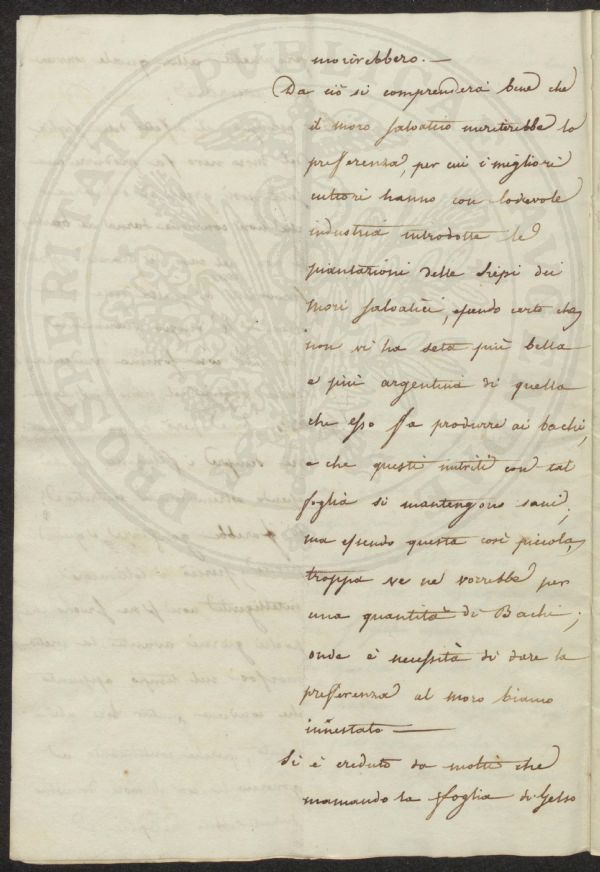 morirebbero. —
Da ciò si comprenderà bene che
il moro salvatico meriterebbe la
preferenza, per cui i migliori
cultori hanno con lodevole
industria introdotte le
piantazioni delle siepi dei
Mori salvatici, essendo certo che
non vi ha seta più bella
e più argentina di quella
che esso fa produrre ai bachi,
e che questi nutriti con tal
foglia si mantengono sani;
ma essendo questa così piccola,
troppa ve ne vorrebbe per
una quantità di Bachi;
onde è necessità di dare la
preferenza al moro bianco
innestato —
Si è creduto da molti che
mancando la foglia di Gelso